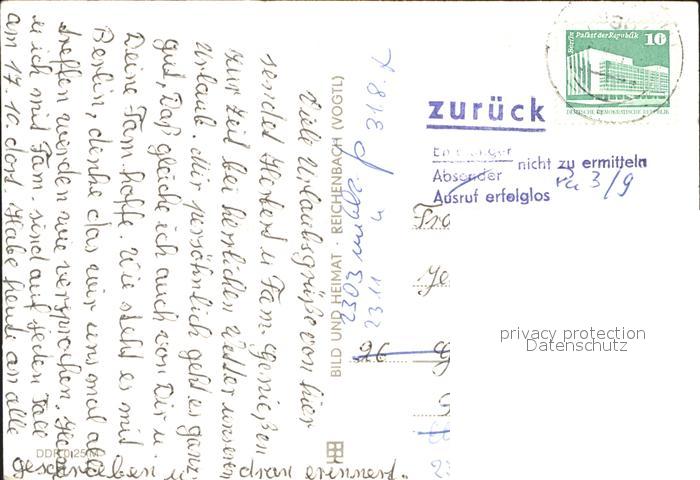 Viele Urlaubsgrüße von hier
sendet Herbert u Fam. Genießen
zur Zeit bei herrlichen Wetter unseren
Urlaub. Mir persönlich geht es ganz
gut, Daß gleiche ich auch von Dir u
Deine Fam. hoffe. Wie steht es mit
Berlin, denke das wir uns mal alle
treffen werden wie versprochen.
u ich mit Fam. sind auf jeden Fall
am 17.10. dort. Habe heut an alle
geschrieben u dran erinnert.
DDR 0,25 M
BILD UND HEIMAT · REICHENBACH (VOGTL)
2303
318
23.11
zurück
Empfänger
Absender
nicht zu ermitteln
Ausruf erfolglos
3/9
Berlin Palast der Republik
10
DEUTSCHE DEMOKRATISCHE REPUBLIK
Fra
26
privacy protection
Datenschutz